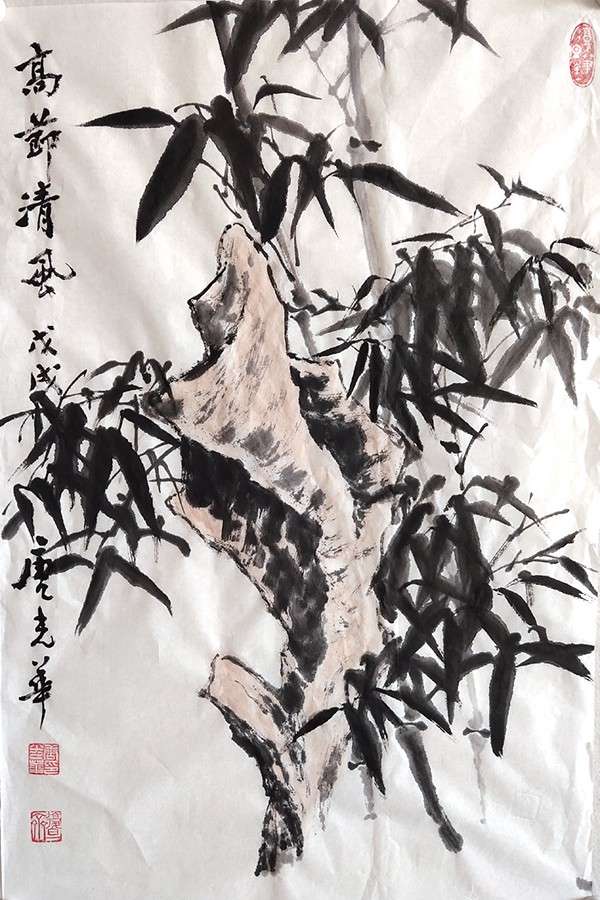 高節清風 戊戌
唐克華